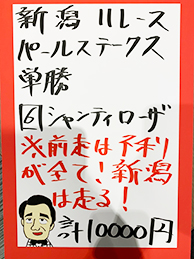 新潟11レース
パールステークス
単勝
⑥シャンティローザ
※前走は予利
が全て!新潟
は走る!
計10000円